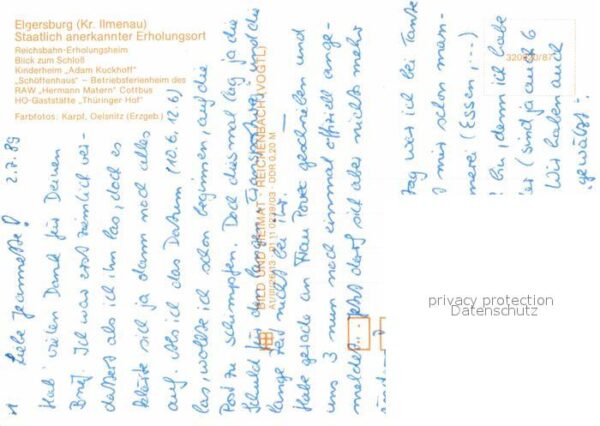 Elgersburg (Kr. Ilmenau)
Staatlich anerkannter Erholungsort
Reichsbahn-Erholungsheim
Blick zum Schloß
Kinderheim „Adam Kuckhoff"
„Schöffenhaus" – Betriebsferienheim des
RAW „Hermann Matern" Cottbus
HO-Gaststätte „Thüringer Hof"
Farbfotos: Karpf, Oelsnitz (Erzgeb.)
BILD UND HEIMAT · REICHENBACH (VOGTL)
DDR 0,20 M
2.7.89
Liebe Jeannette!
Hab' vielen Dank für Deinen
Brief. Ich war erst ziemlich ver-
dattert als ich ihn las, doch es
klärte sich ja dann noch alles
auf. Als ich das Datum (10.6., 12.6)
las, wollte ich schon beginnen, auf die
Post zu schimpfen. Doch diesmal lag ja die
Schuld für den langen Transport und die
lange Zeit nicht bei ihr!
Habe gerade an Frau geschrieben und
uns 3 nun noch einmal offiziell ange-
meldet. Jetzt darf sich aber nichts mehr
tag war ich bei Tante
mir schon man-
merei (Essen, ...)
hin, denn ich habe
er (sind ja auch 6
Wir haben auch
„gewählt".
privacy protection
Datenschutz